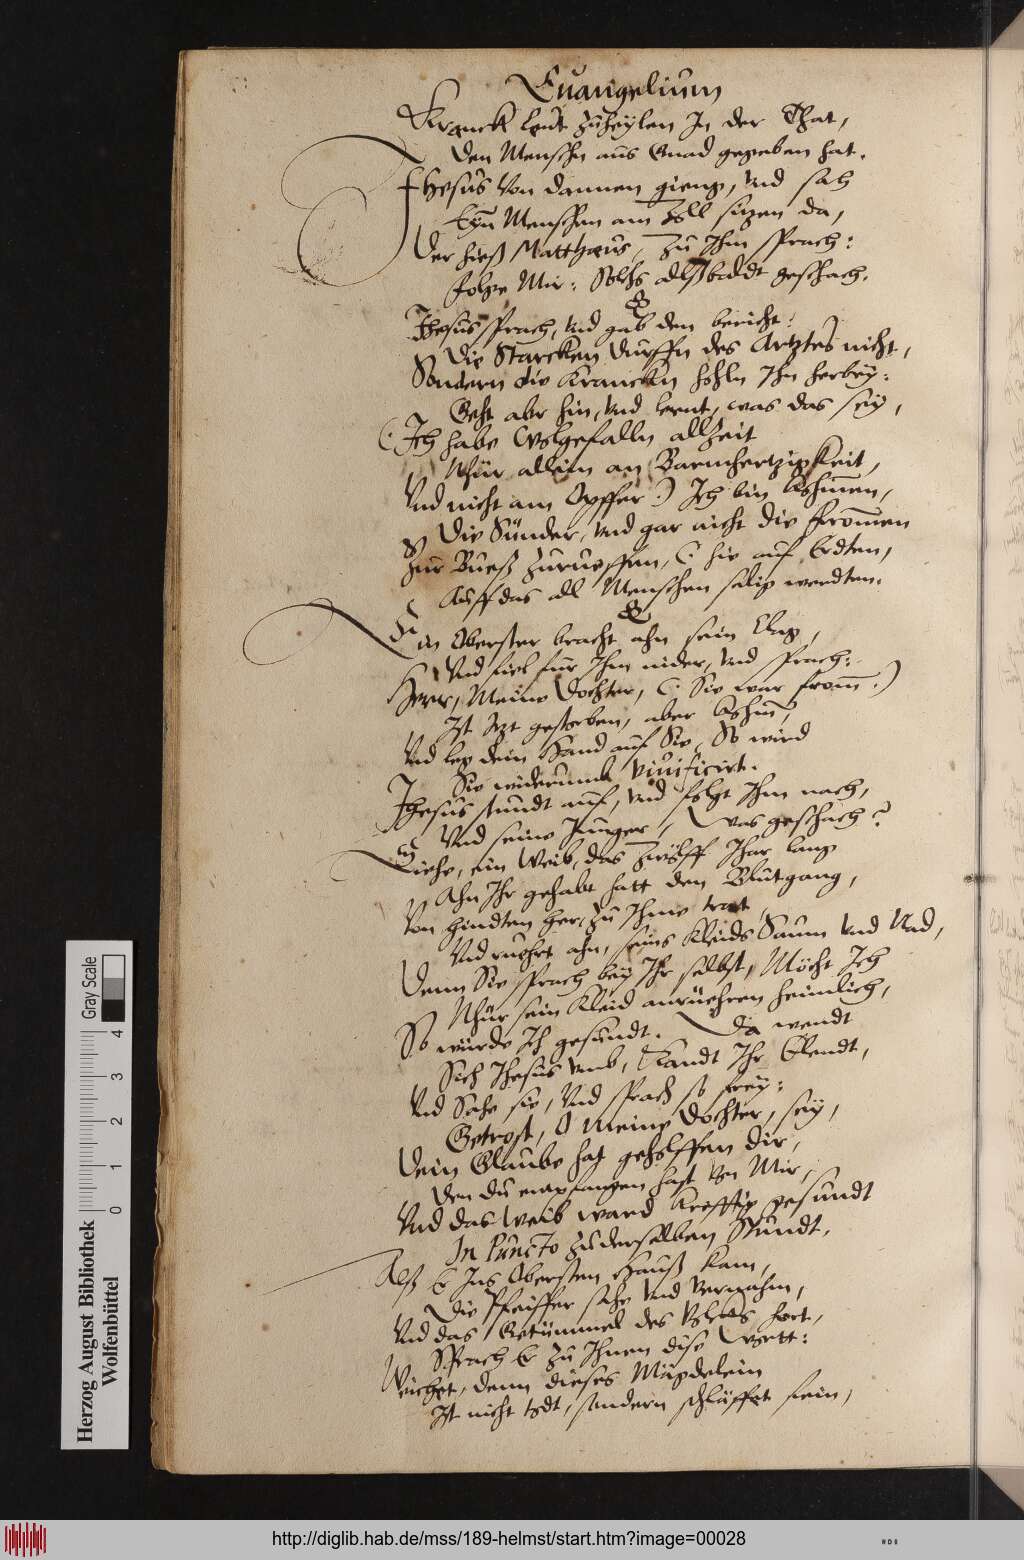 Euangelium
Kranck leut zuheylen In der That,
Den Menschen aus Gnad gegeben hat.
Jhesus von dannen gieng, Vnd sah
Eyn Menschen am Zoll sitzen da,
Der hieß Matthæus, Zu Ihm sprach:
folge Mir: Solchs alsbaldt geschach.
Jhesus sprach, Vnd gab den bericht:
Die Starcken durffn des Artztes nicht,
Sondern die Krancken holn Ihn herbey:
Geht abr hin, Vnd lernt, was das sey,
(: Ich habe Wolgefalln allzeit
Nhur allein an Barmhertzigkeit,
Vnd nicht am Opffer :) Ich bin kohmen,
Die Sünder, Vnd gar nicht die frommen
Zur Bueß Zurueffen, (: hie auf Erdten,
Auff das all Menschen selig werdten.
Ein Oberster bracht ahn sein Clag,
Vnd fiel für Ihm nider, Vnd sprach:
Herr, Meine Dochter, (: Sie war from :)
Ist itzt gestorben, aber kohm,
Vnd leg dein Hand auf Sie, So wird
Sie widerumb viuificirt.
Jhesus stundt auf, Vnd folgt Ihm nach,
Vnd seine Junger, Was geschach?
Siehe, ein Weib, das Zwölff Jhar lang
Ahn Ihr gehabt hatt den Blutgang,
Von hindten her, Zu Ihme trat,
Vnd ruehrt ahn, seins Kleids Saum Vnd Nad,
Denn Sie sprach bey Ihr selbst, Möcht Ich
Nhür sein Kleid anrüehren heimlich,
So würde Ich gesundt. Da wendt
Sich Jhesus vmb, kandt Ihr Elendt,
Vnd Sahe sie, Vnd sprach so frey:
Getrost, O meine Dochter, sey,
Dein Glaube hat geholffen dir,
Den du empfangen hast von Mir,
Vnd das Weib ward krefftig gesundt
In Puncto zuderselben Stundt.
Alß Er Ins Obersten Hauß kam,
Die Pfeiffer sahe Vnd vernahm,
Vnd das Getümmel des Volcks hort,
Sprach Er Zu Ihnen dise Wortt:
Weichet, denn dieses Mägdelein
Ist nicht todt, sondern schläffet fein,
Gray Scale
0 1 2 3 4
Herzog August Bibliothek
Wolfenbüttel
http://diglib.hab.de/mss/189-helmst/start.htm?image=00028